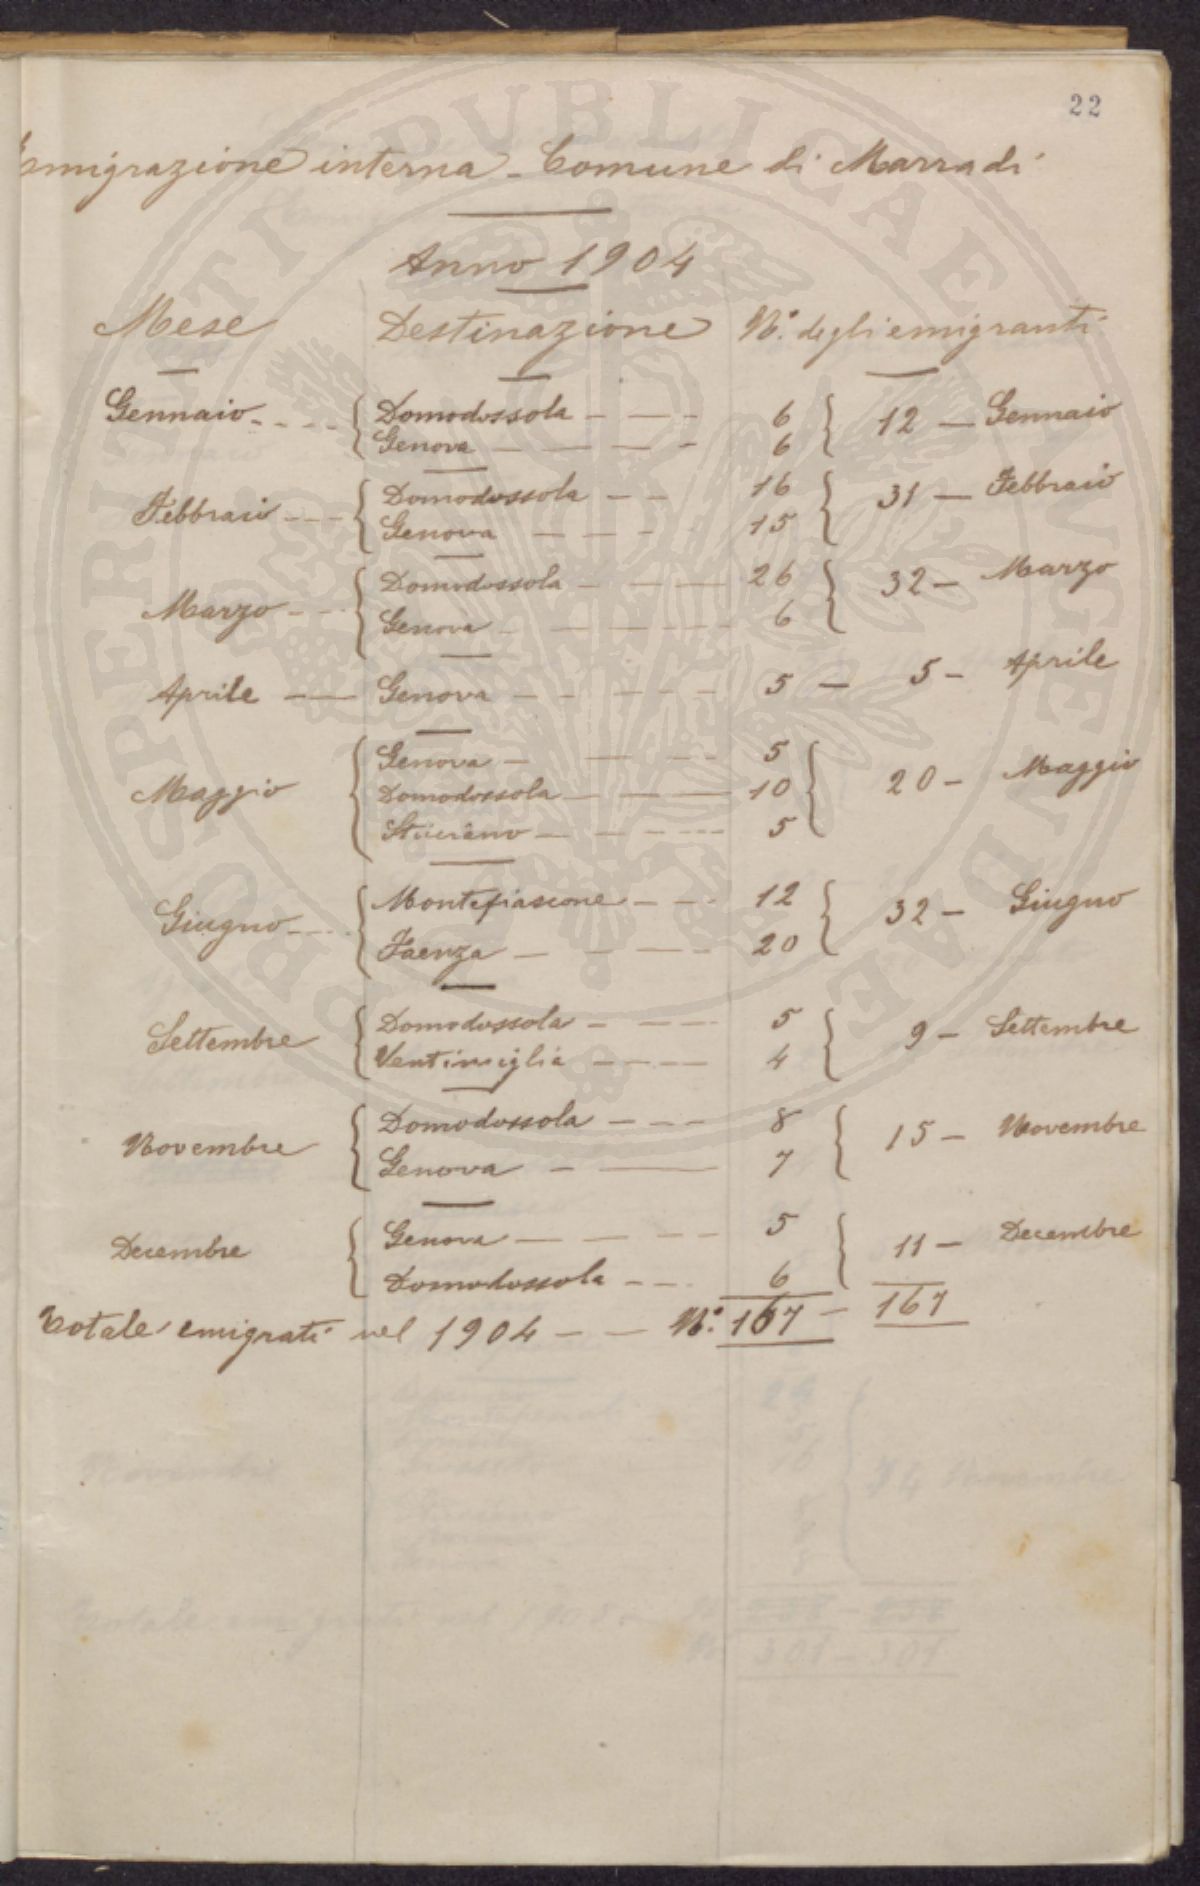 22
Emigrazione interna - Comune di Marradi
Anno 1904
Mese Destinazione N°. degli emigranti
Gennaio { Domodossola 6 } 12 - Gennaio
Genova 6
Febbraio { Domodossola 16 } 31 - Febbraio
Genova 15
Marzo { Domodossola 26 } 32 - Marzo
Genova 6
Aprile Genova 5 - 5 - Aprile
Maggio { Genova 5 } 20 - Maggio
Domodossola 10
5
Giugno { Montefiascone 12 } 32 - Giugno
Faenza 20
Settembre { Domodossola 5 } 9 - Settembre
Ventimiglia 4
Novembre { Domodossola 8 } 15 - Novembre
Genova 7
Decembre { Genova 5 } 11 - Decembre
Domodossola 6
Totale emigrati nel 1904 - - N°. 167 - 167
PROSPERITATI PUBLICAE AUGENDAE